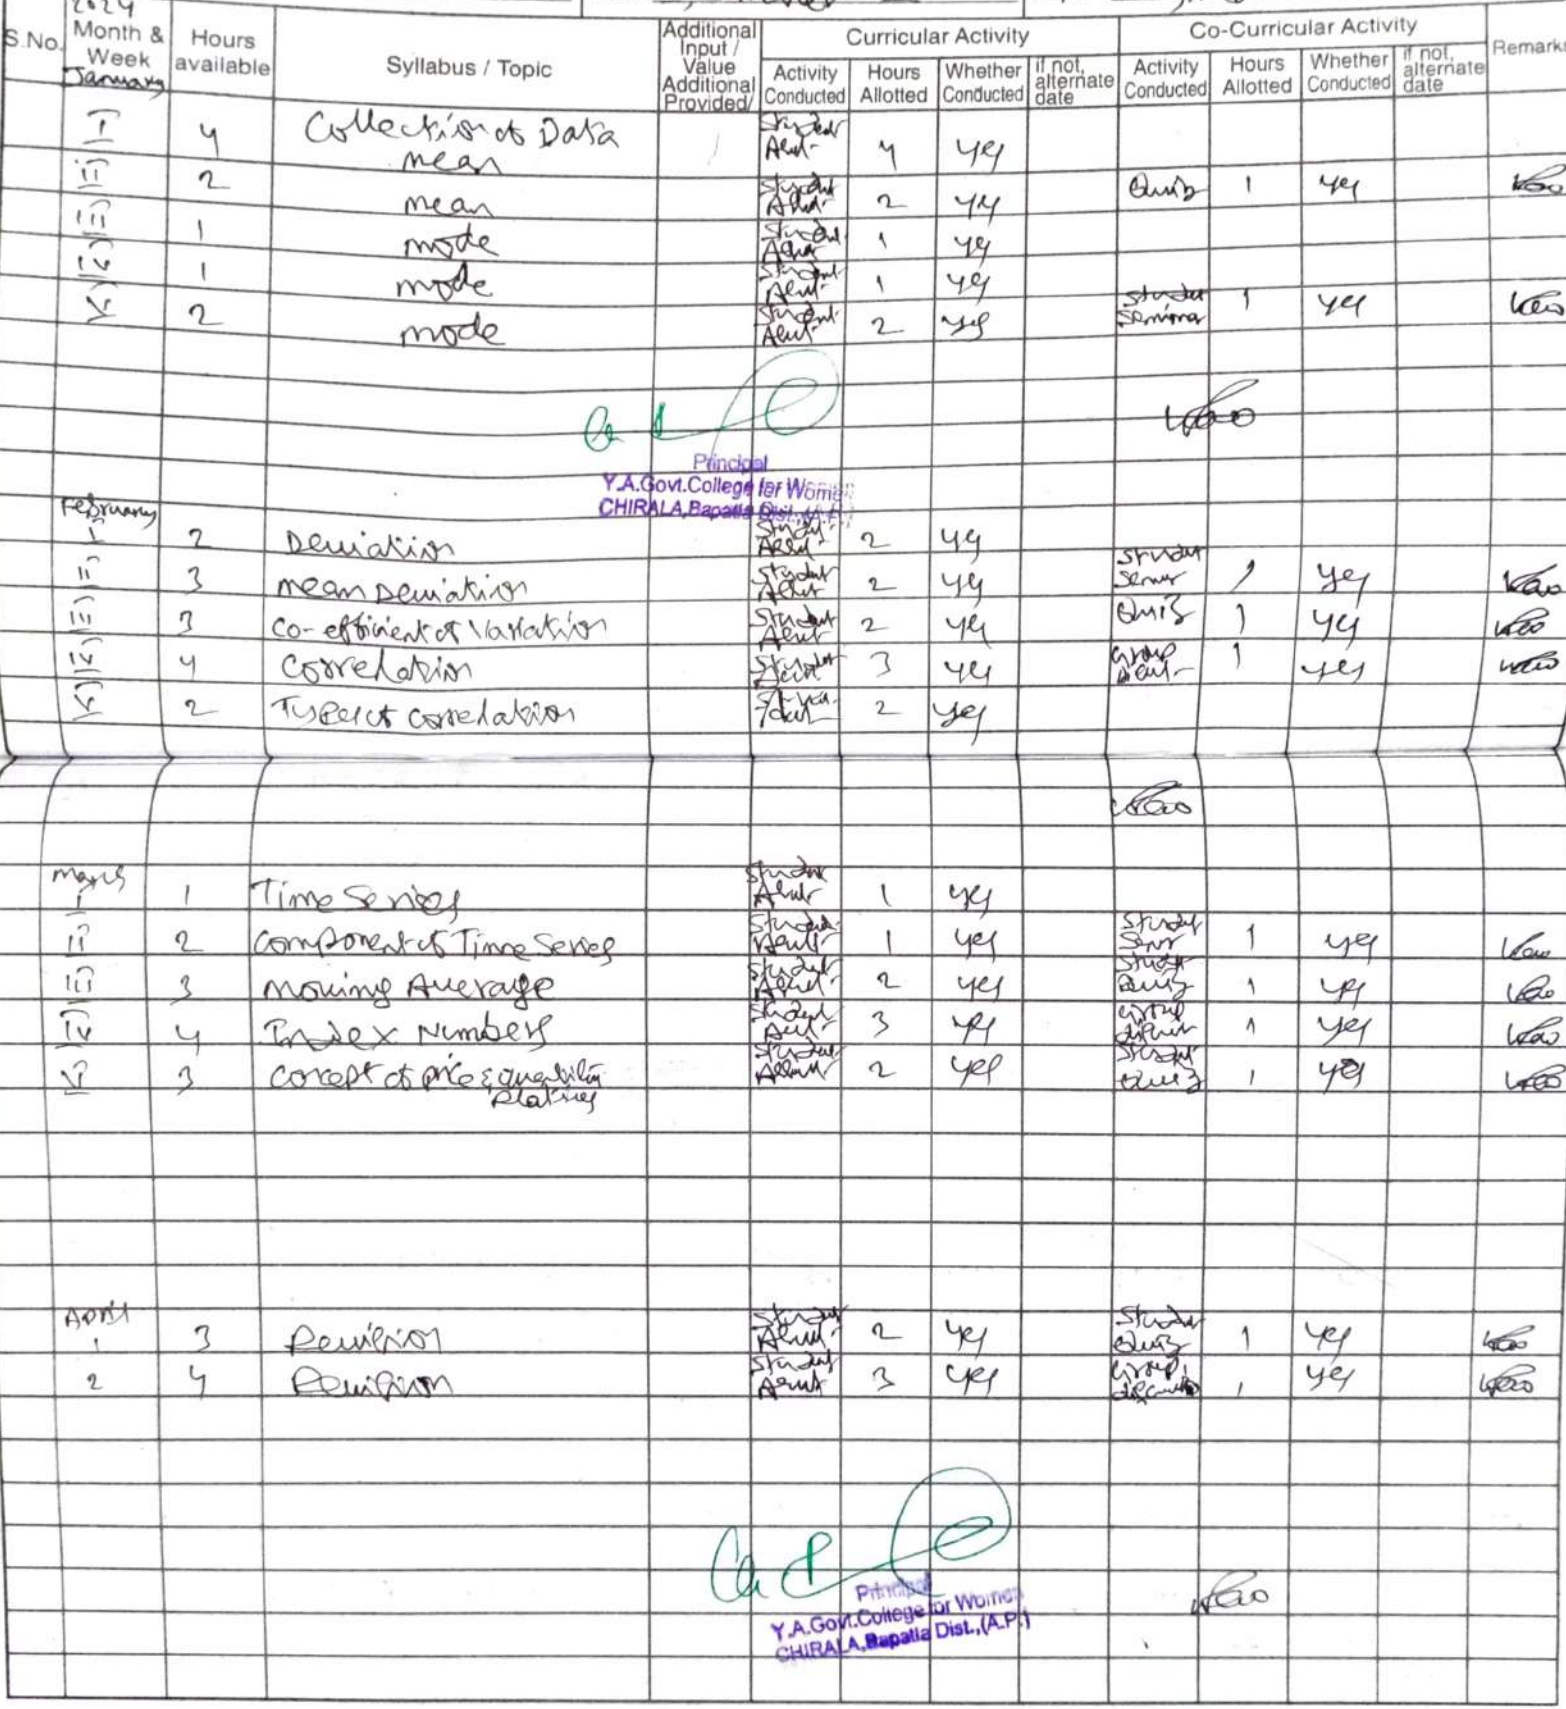 2024
S.No. Month & Week Hours available Syllabus / Topic Additional Input / Value Additional Provided/ Curricular Activity Co-Curricular Activity Remarks
Activity Conducted Hours Allotted Whether Conducted if not, alternate date Activity Conducted Hours Allotted Whether Conducted if not, alternate date
January
I 4 Collection of Data mean Student 4 yes
ii 2 mean Student 2 yes Quiz 1 yes
iii 1 mode Student 1 yes
iv 1 mode Student 1 yes
V 2 mode Student 2 yes Student Seminar 1 yes
Principal
Y.A.Govt.College for Women
CHIRALA, Bapatla Dist., (A.P.)
February
I 2 Deviation 2 yes
ii 3 mean Deviation Student 2 yes Student 1 yes
iii 3 Co-efficient of Variation Student 2 yes Quiz 1 yes
iv 4 Correlation Student 3 yes Group 1 yes
V 2 Types of correlation 2 yes
March
I 1 Time Series Student 1 yes
ii 2 Component of Time Series Student 1 yes Student 1 yes
iii 3 Moving Average Student 2 yes Study Quiz 1 yes
iv 4 Index Numbers Student 3 yes Group 1 yes
V 3 Concept of price & quantity relatives Student 2 yes Student Quiz 1 yes
April
1 3 Revision Student 2 yes Student Quiz 1 yes
2 4 Revision Student 3 yes Group 1 yes
Principal
Y.A.Govt.College for Women
CHIRALA, Bapatla Dist., (A.P.)